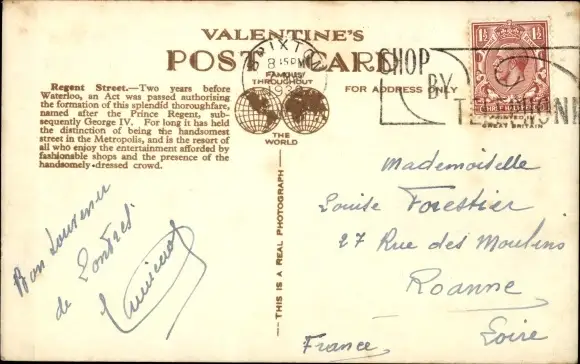 VALENTINE'S
POST CARD
FAMOUS
THROUGHOUT
THE
WORLD
FOR ADDRESS ONLY
BRIXTON
8.15 PM
SHOP
BY
TELEPHONE
1½
1½
PRINTED IN
GREAT BRITAIN
Regent Street.—Two years before
Waterloo, an Act was passed authorising
the formation of this splendid thoroughfare,
named after the Prince Regent, sub-
sequently George IV. For long it has held
the distinction of being the handsomest
street in the Metropolis, and is the resort of
all who enjoy the entertainment afforded by
fashionable shops and the presence of the
handsomely-dressed crowd.
Bon Souvenir
de Londres.
THIS IS A REAL PHOTOGRAPH
Mademoiselle
Louise Forestier
27 Rue des Moulins
Roanne
Loire
France